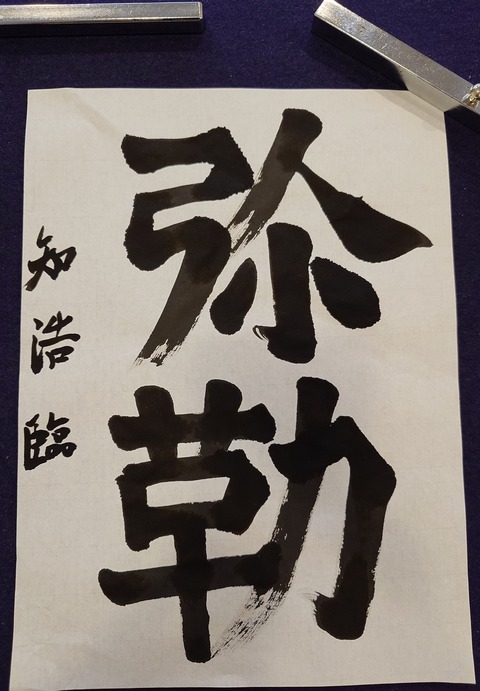 弥勒
知浩臨